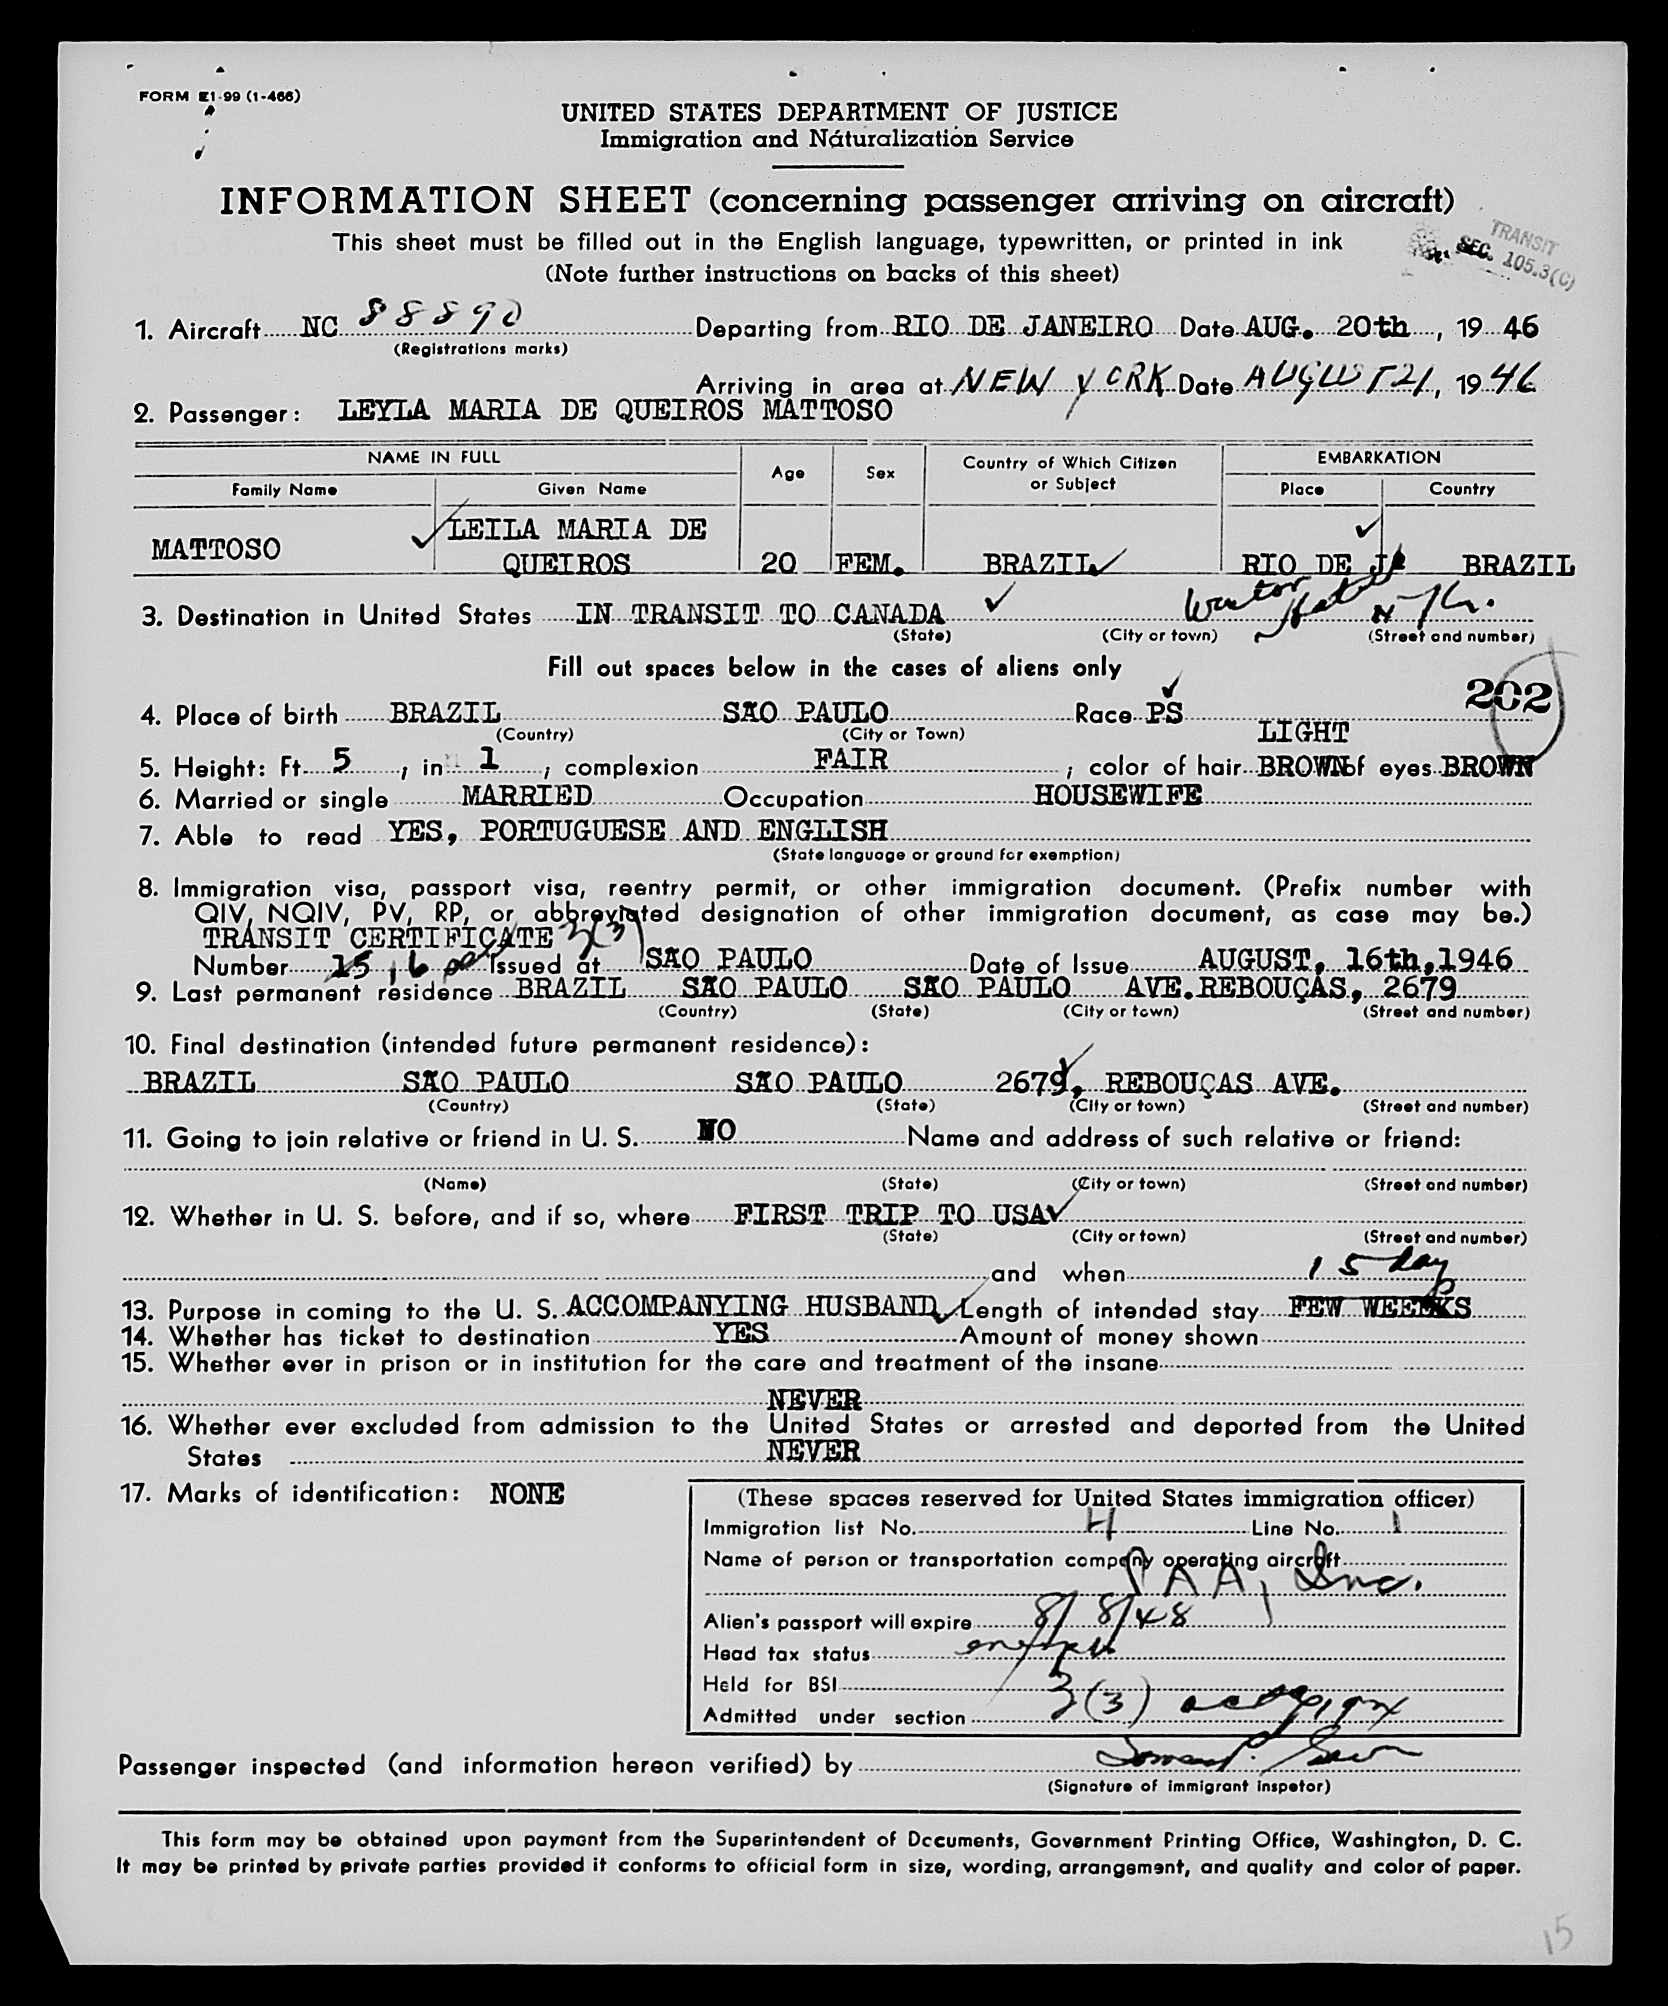 FORM E1-99 (1-466)
UNITED STATES DEPARTMENT OF JUSTICE
Immigration and Naturalization Service
INFORMATION SHEET (concerning passenger arriving on aircraft)
This sheet must be filled out in the English language, typewritten, or printed in ink
(Note further instructions on backs of this sheet)
TRANSIT
SEC. 105.3(C)
1. Aircraft NC 88890 Departing from RIO DE JANEIRO Date AUG. 20th, 19 46
(Registrations marks)
Arriving in area at NEW YORK Date AUGUST 21, 19 46
2. Passenger: LEYLA MARIA DE QUEIROS MATTOSO
NAME IN FULL Age Sex Country of Which Citizen or Subject EMBARKATION
Family Name Given Name Place Country
MATTOSO LEILA MARIA DE QUEIROS 20 FEM. BRAZIL RIO DE JA BRAZIL
3. Destination in United States IN TRANSIT TO CANADA Hotel N.Y.
(State) (City or town) (Street and number)
Fill out spaces below in the cases of aliens only
202
4. Place of birth BRAZIL SÃO PAULO Race PS
(Country) (City or Town)
LIGHT
5. Height: Ft. 5, in 1; complexion FAIR; color of hair BROWN of eyes BROWN
6. Married or single MARRIED Occupation HOUSEWIFE
7. Able to read YES, PORTUGUESE AND ENGLISH
(State language or ground for exemption)
8. Immigration visa, passport visa, reentry permit, or other immigration document. (Prefix number with
QIV, NQIV, PV, RP, or abbreviated designation of other immigration document, as case may be.)
TRANSIT CERTIFICATE 3(3)
Number 15 Issued at SÃO PAULO Date of Issue AUGUST, 16th,1946
9. Last permanent residence BRAZIL SÃO PAULO SÃO PAULO AVE.REBOUÇAS, 2679
(Country) (State) (City or town) (Street and number)
10. Final destination (intended future permanent residence):
BRAZIL SÃO PAULO SÃO PAULO 2679, REBOUÇAS AVE.
(Country) (State) (City or town) (Street and number)
11. Going to join relative or friend in U. S. NO Name and address of such relative or friend:
(Name) (State) (City or town) (Street and number)
12. Whether in U. S. before, and if so, where FIRST TRIP TO USA
(State) (City or town) (Street and number)
and when
15 day
13. Purpose in coming to the U. S. ACCOMPANYING HUSBAND Length of intended stay FEW WEEKS
14. Whether has ticket to destination YES Amount of money shown
15. Whether ever in prison or in institution for the care and treatment of the insane
NEVER
16. Whether ever excluded from admission to the United States or arrested and deported from the United
States NEVER
17. Marks of identification: NONE
(These spaces reserved for United States immigration officer)
Immigration list No. 4 Line No. 1
Name of person or transportation company operating aircraft
PAA, Inc.
Alien's passport will expire 8/8/48
Head tax status
Held for BSI
Admitted under section 3(3)
Passenger inspected (and information hereon verified) by
(Signature of immigrant inspetor)
This form may be obtained upon payment from the Superintendent of Documents, Government Printing Office, Washington, D. C.
It may be printed by private parties provided it conforms to official form in size, wording, arrangement, and quality and color of paper.
15